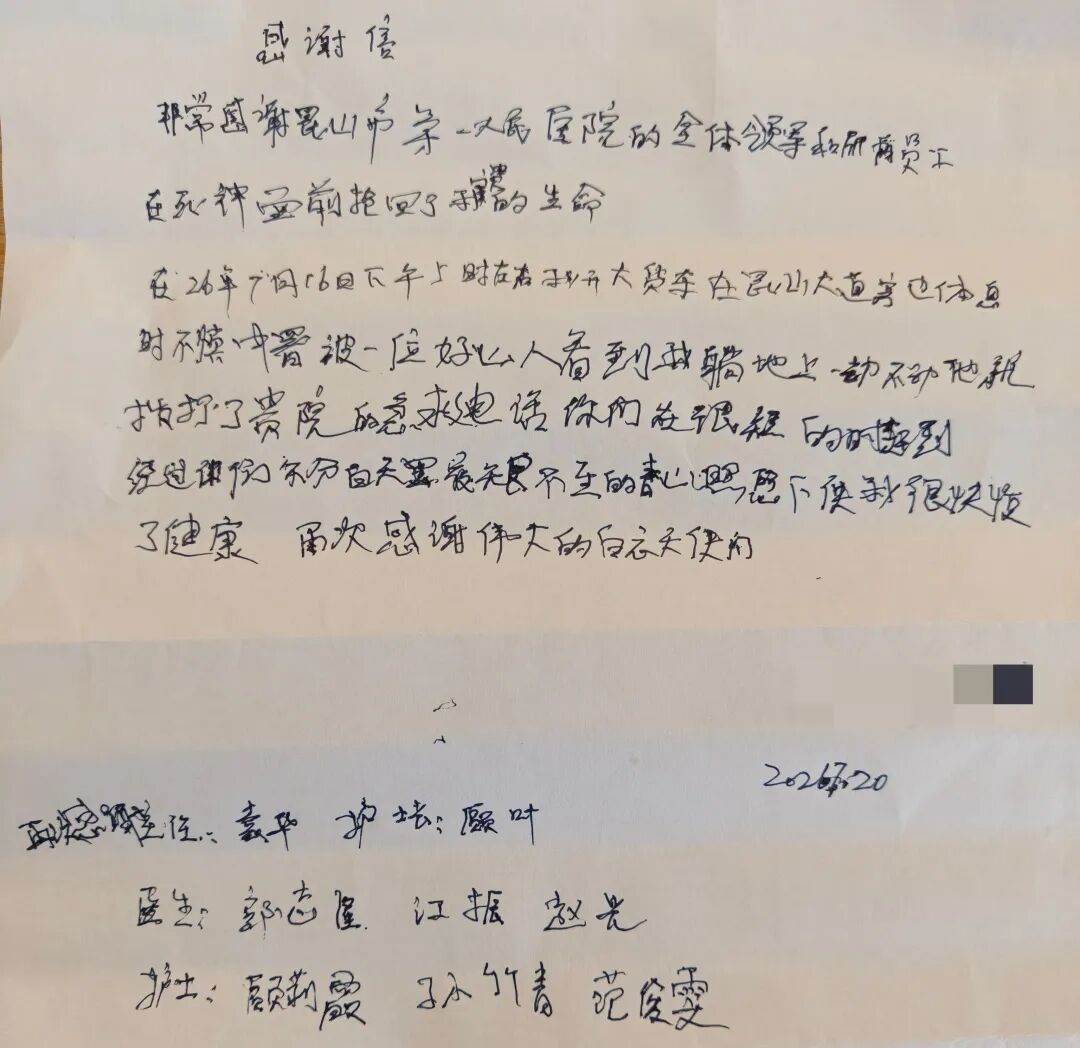 感谢信
非常感谢昆山市第一人民医院的全体领导和所有员工
在死神面前抢回了我的生命
在26年7月16日下午5时左右我开大货车在昆山大道等也休息
时不慎中暑被一位好心人看到我躺地上一动不动他就
拨打了贵院的急求电话你们在很短的时间赶到
经过你们不分白天黑夜无不至的照愿下使我很快恢
了健康 再次感谢伟大的白衣天使们
2026.7.20
再次感谢主任:袁华 护士长:顾叶
医生:郭志隆 江振 赵亮
护士:顾莉霞 孙竹青 范俊雯